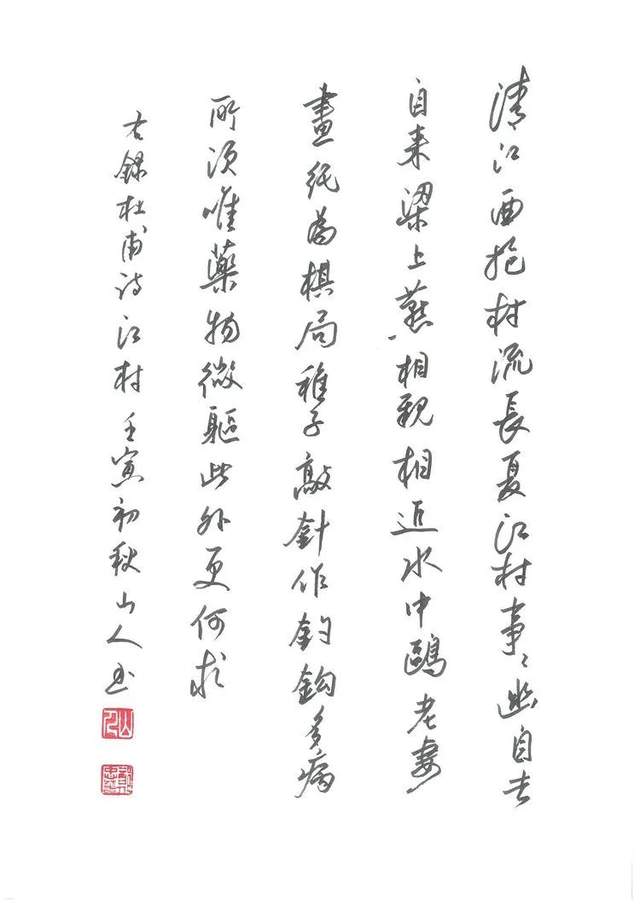 清江一曲抱村流長夏江村事〻幽自去
自来梁上燕相親相近水中鷗老妻
畫紙為棋局稚子敲針作釣鈎多病
所須唯藥物微軀此外更何求
右錄杜甫詩江村壬寅初秋山人書
山人